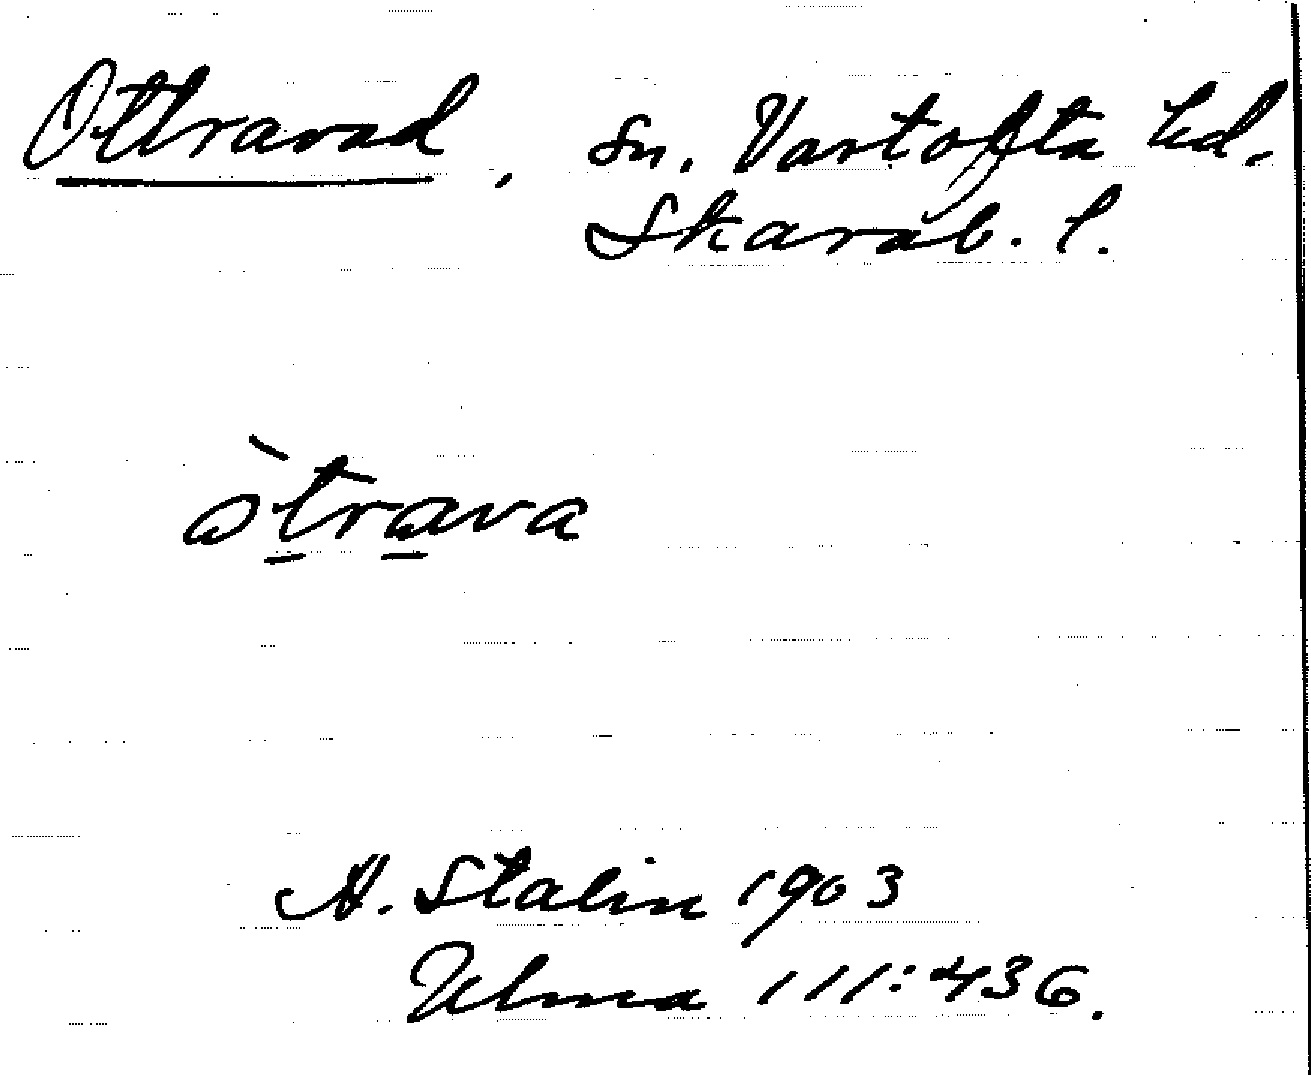 Ottravad, sn. Vartofta hd.
Skarab. l.
òtrava
A. Stalin 1903
Ulma 111:436.